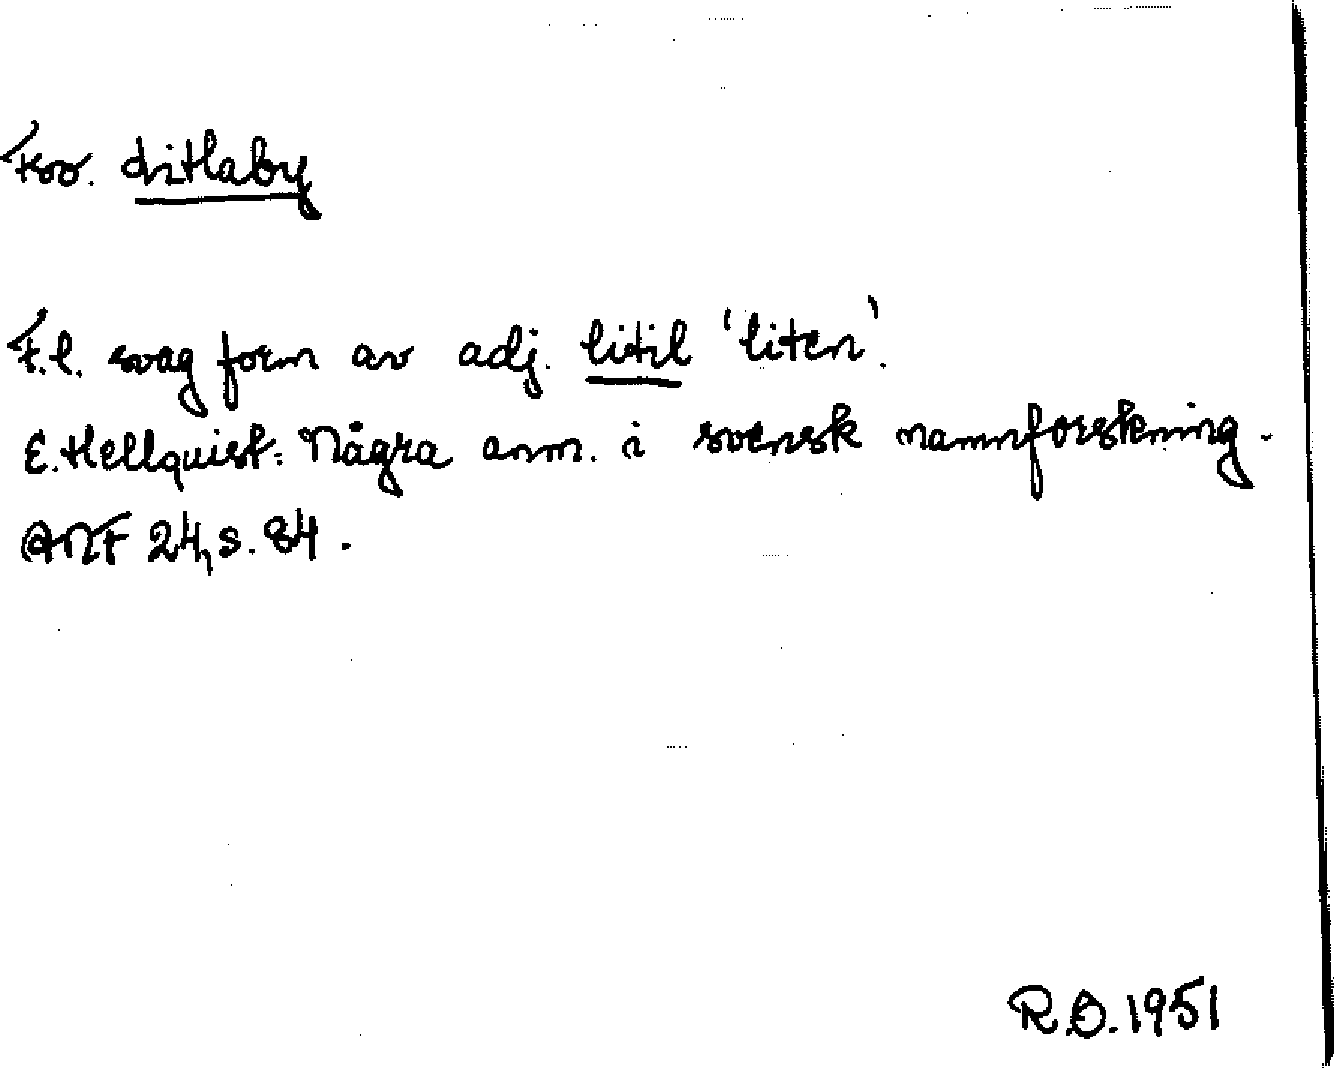 Fsv. Litlaby
F.l. svag form av adj. litil 'liten'.
E. Hellquist: Några anm. i svensk namnforskning.
ANF 24, s. 84.
R.Ö. 1951